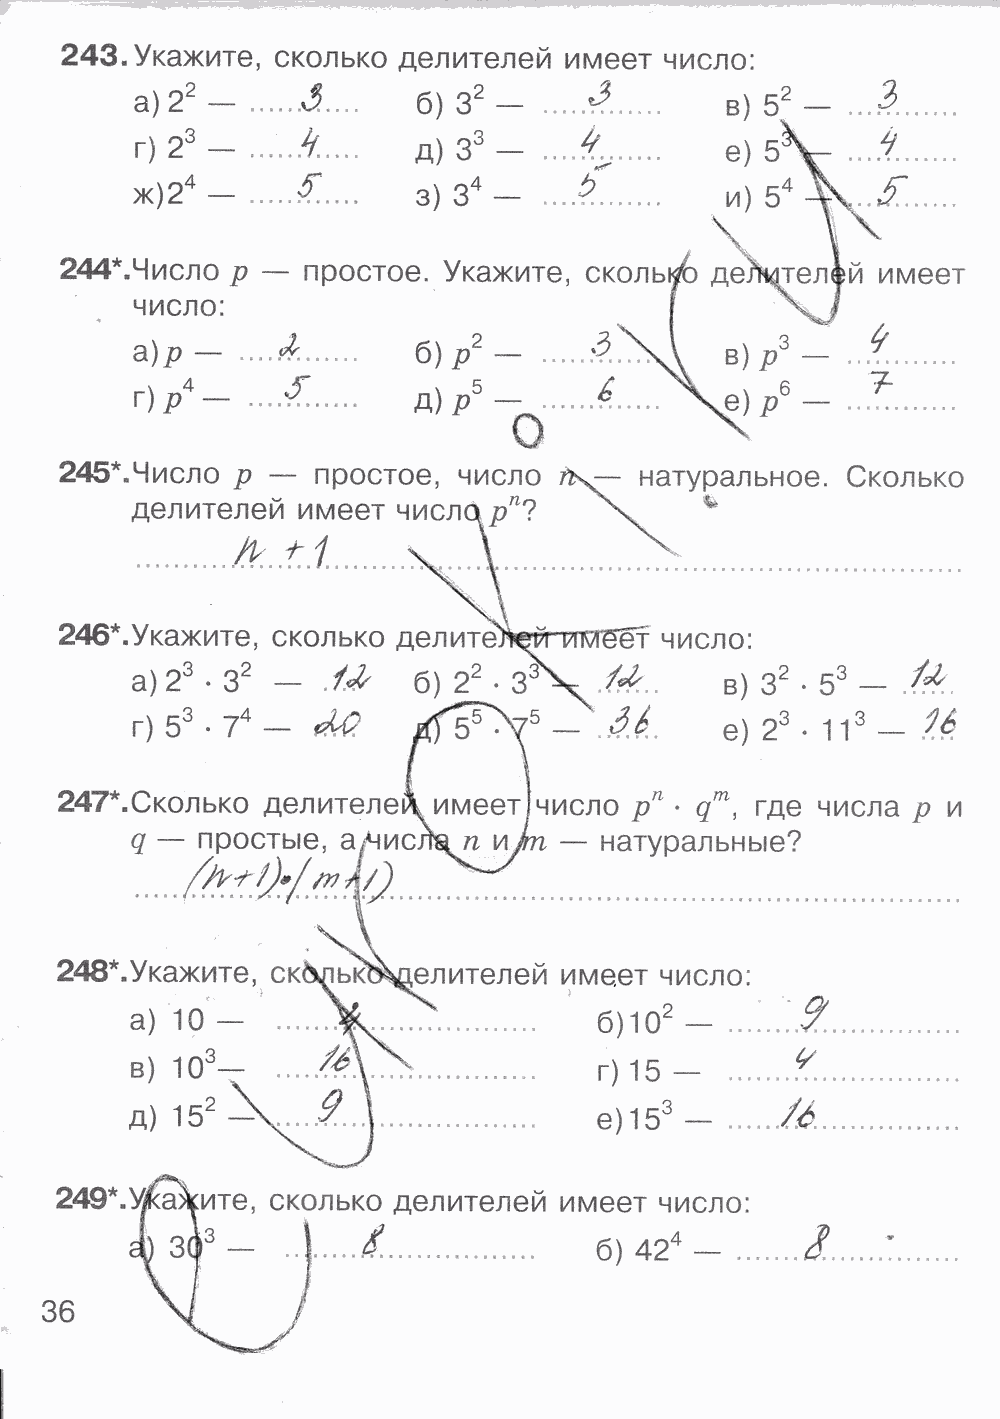 243. Укажите, сколько делителей имеет число:
а) 2² — 3 б) 3² — 3 в) 5² — 3
г) 2³ — 4 д) 3³ — 4 е) 5³ — 4
ж) 2⁴ — 5 з) 3⁴ — 5 и) 5⁴ — 5
244*. Число p — простое. Укажите, сколько делителей имеет
число:
а) p — 2 б) p² — 3 в) p³ — 4
г) p⁴ — 5 д) p⁵ — 6 е) p⁶ — 7
245*. Число p — простое, число n — натуральное. Сколько
делителей имеет число pⁿ?
n + 1
246*. Укажите, сколько делителей имеет число:
а) 2³ · 3² — 12 б) 2² · 3³ — 12 в) 3² · 5³ — 12
г) 5³ · 7⁴ — 20 д) 5⁵ · 7⁵ — 36 е) 2³ · 11³ — 16
247*. Сколько делителей имеет число pⁿ · qᵐ, где числа p и
q — простые, а числа n и m — натуральные?
(n+1)·(m+1)
248*. Укажите, сколько делителей имеет число:
а) 10 — 4 б) 10² — 9
в) 10³ — 16 г) 15 — 4
д) 15² — 9 е) 15³ — 16
249*. Укажите, сколько делителей имеет число:
а) 30³ — 8 б) 42⁴ — 8
36